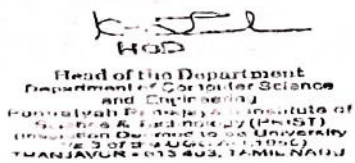 HOD
Head of the Department
Department of Computer Science
and Engineering
Ponnaiyah Ramajayam Institute of
Science & Technology (PRIST)
(Institution Deemed to be University
u/s 3 of the UGC Act, 1956)
THANJAVUR - 613 403, TAMIL NADU